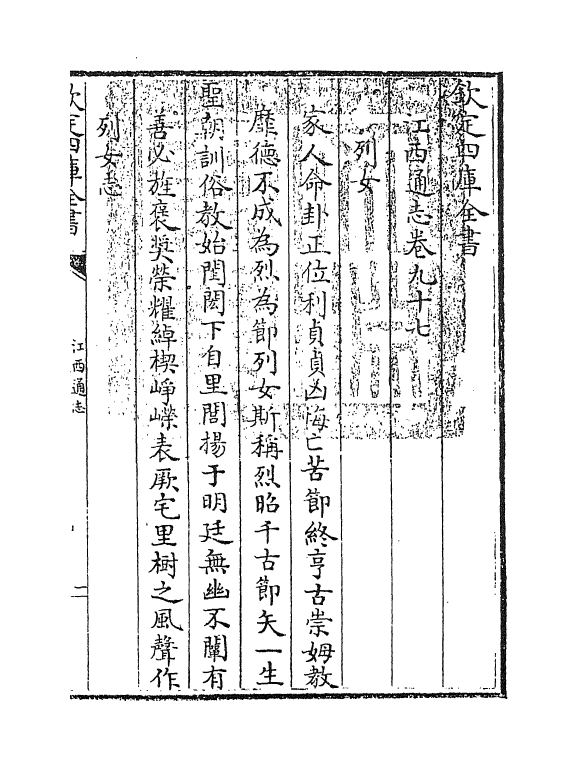 欽定四庫全書
江西通志卷九十七
列女
家人命卦正位利貞貞凶悔亡苦節終亨古崇姆教
靡德不成為烈為節列女斯稱烈昭千古節矢一生
聖朝訓俗教始閨閎下自里閭揚于明廷無幽不闡有
善必旌褒奬榮耀綽楔崢嶸表厥宅里樹之風聲作
列女志
欽定四庫全書
江西通志